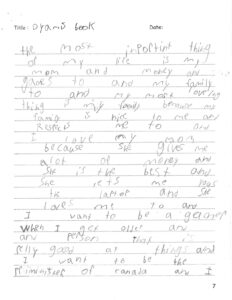 Title: Dyami's book Date:
the most inportint thing
of my life is my
mom and money and
games to and my family
to and my most loveing
thing is my family because my
family is nice to me and
me to and
I love my mom
because she gives me
alot of money and
she is the best and
she lets me
laptop and she
loves me to and
I want to be a geamer
when I get older and
person that is
relly good at things and
I want to be the
of canada and I
7